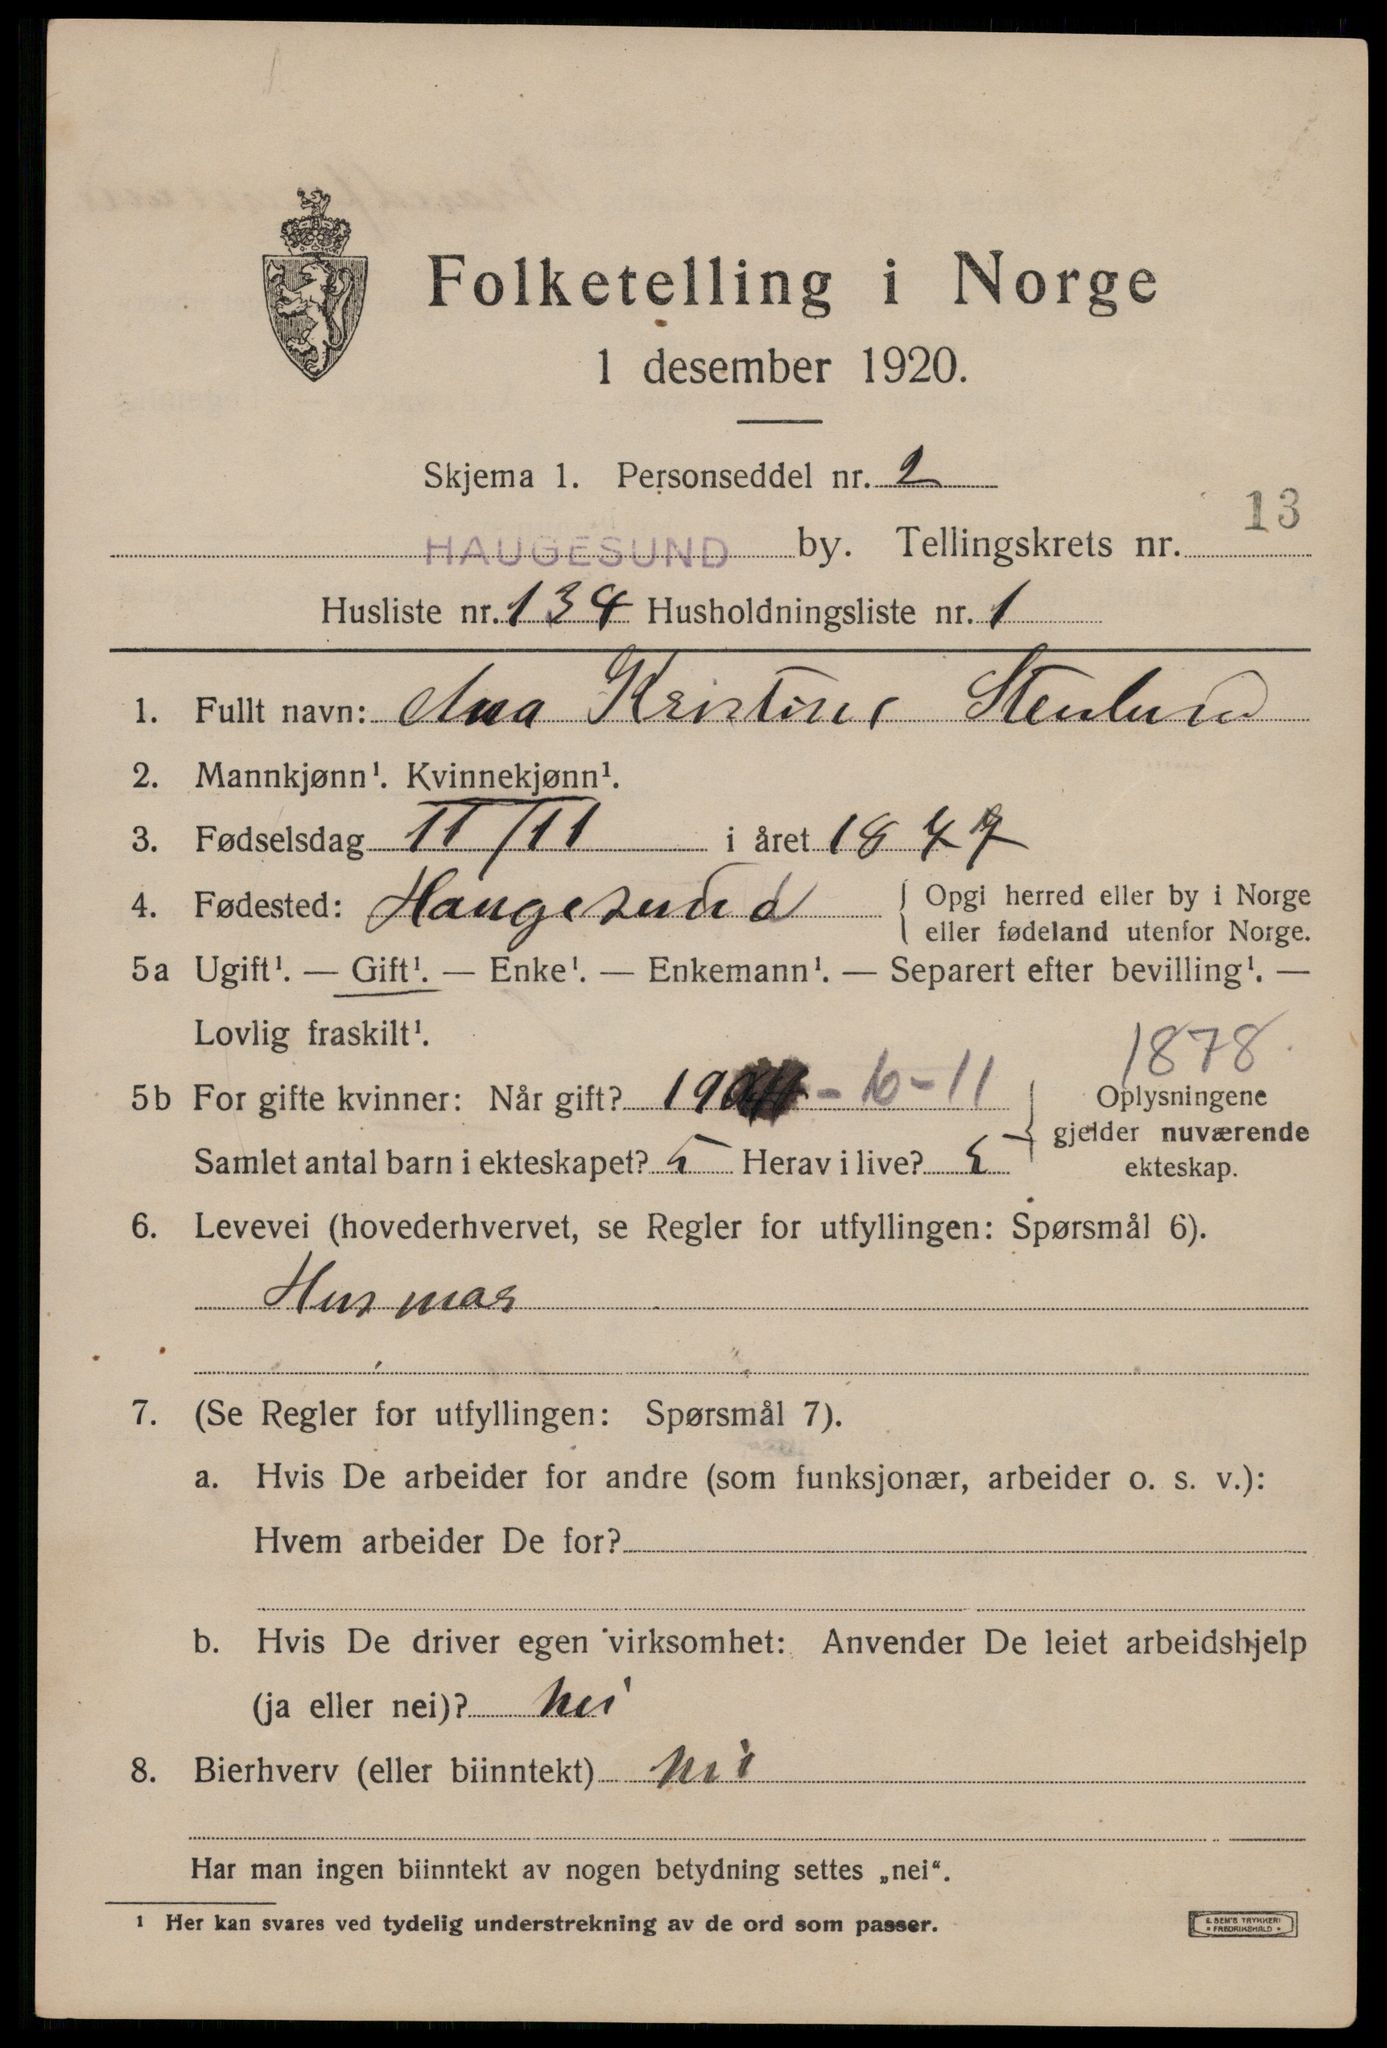 Folketelling i Norge
1 desember 1920.
Skjema 1. Personseddel nr. 2
HAUGESUND by. Tellingskrets nr. 13
Husliste nr. 134 Husholdningsliste nr. 1
1. Fullt navn: Ana Kristine Stenlund
2. Mannkjønn¹. Kvinnekjønn¹.
3. Fødselsdag 11/11 i året 1877
4. Fødested: Haugesund { Opgi herred eller by i Norge
eller fødeland utenfor Norge.
5a Ugift¹. — Gift¹. — Enke¹. — Enkemann¹. — Separert efter bevilling¹. —
Lovlig fraskilt¹.
1878.
5b For gifte kvinner: Når gift? 19 - 6 - 11 } Oplysningene
gjelder nuværende
Samlet antal barn i ekteskapet? 5 Herav i live? 5
ekteskap.
6. Levevei (hovederhvervet, se Regler for utfyllingen: Spørsmål 6).
Husmor
7. (Se Regler for utfyllingen: Spørsmål 7).
a. Hvis De arbeider for andre (som funksjonær, arbeider o. s. v.):
Hvem arbeider De for?
b. Hvis De driver egen virksomhet: Anvender De leiet arbeidshjelp
(ja eller nei)? nei
8. Bierhverv (eller biinntekt) nei
Har man ingen biinntekt av nogen betydning settes „nei“.
¹ Her kan svares ved tydelig understrekning av de ord som passer.
E. SEM'S TRYKKERI
• FREDRIKSHALD •